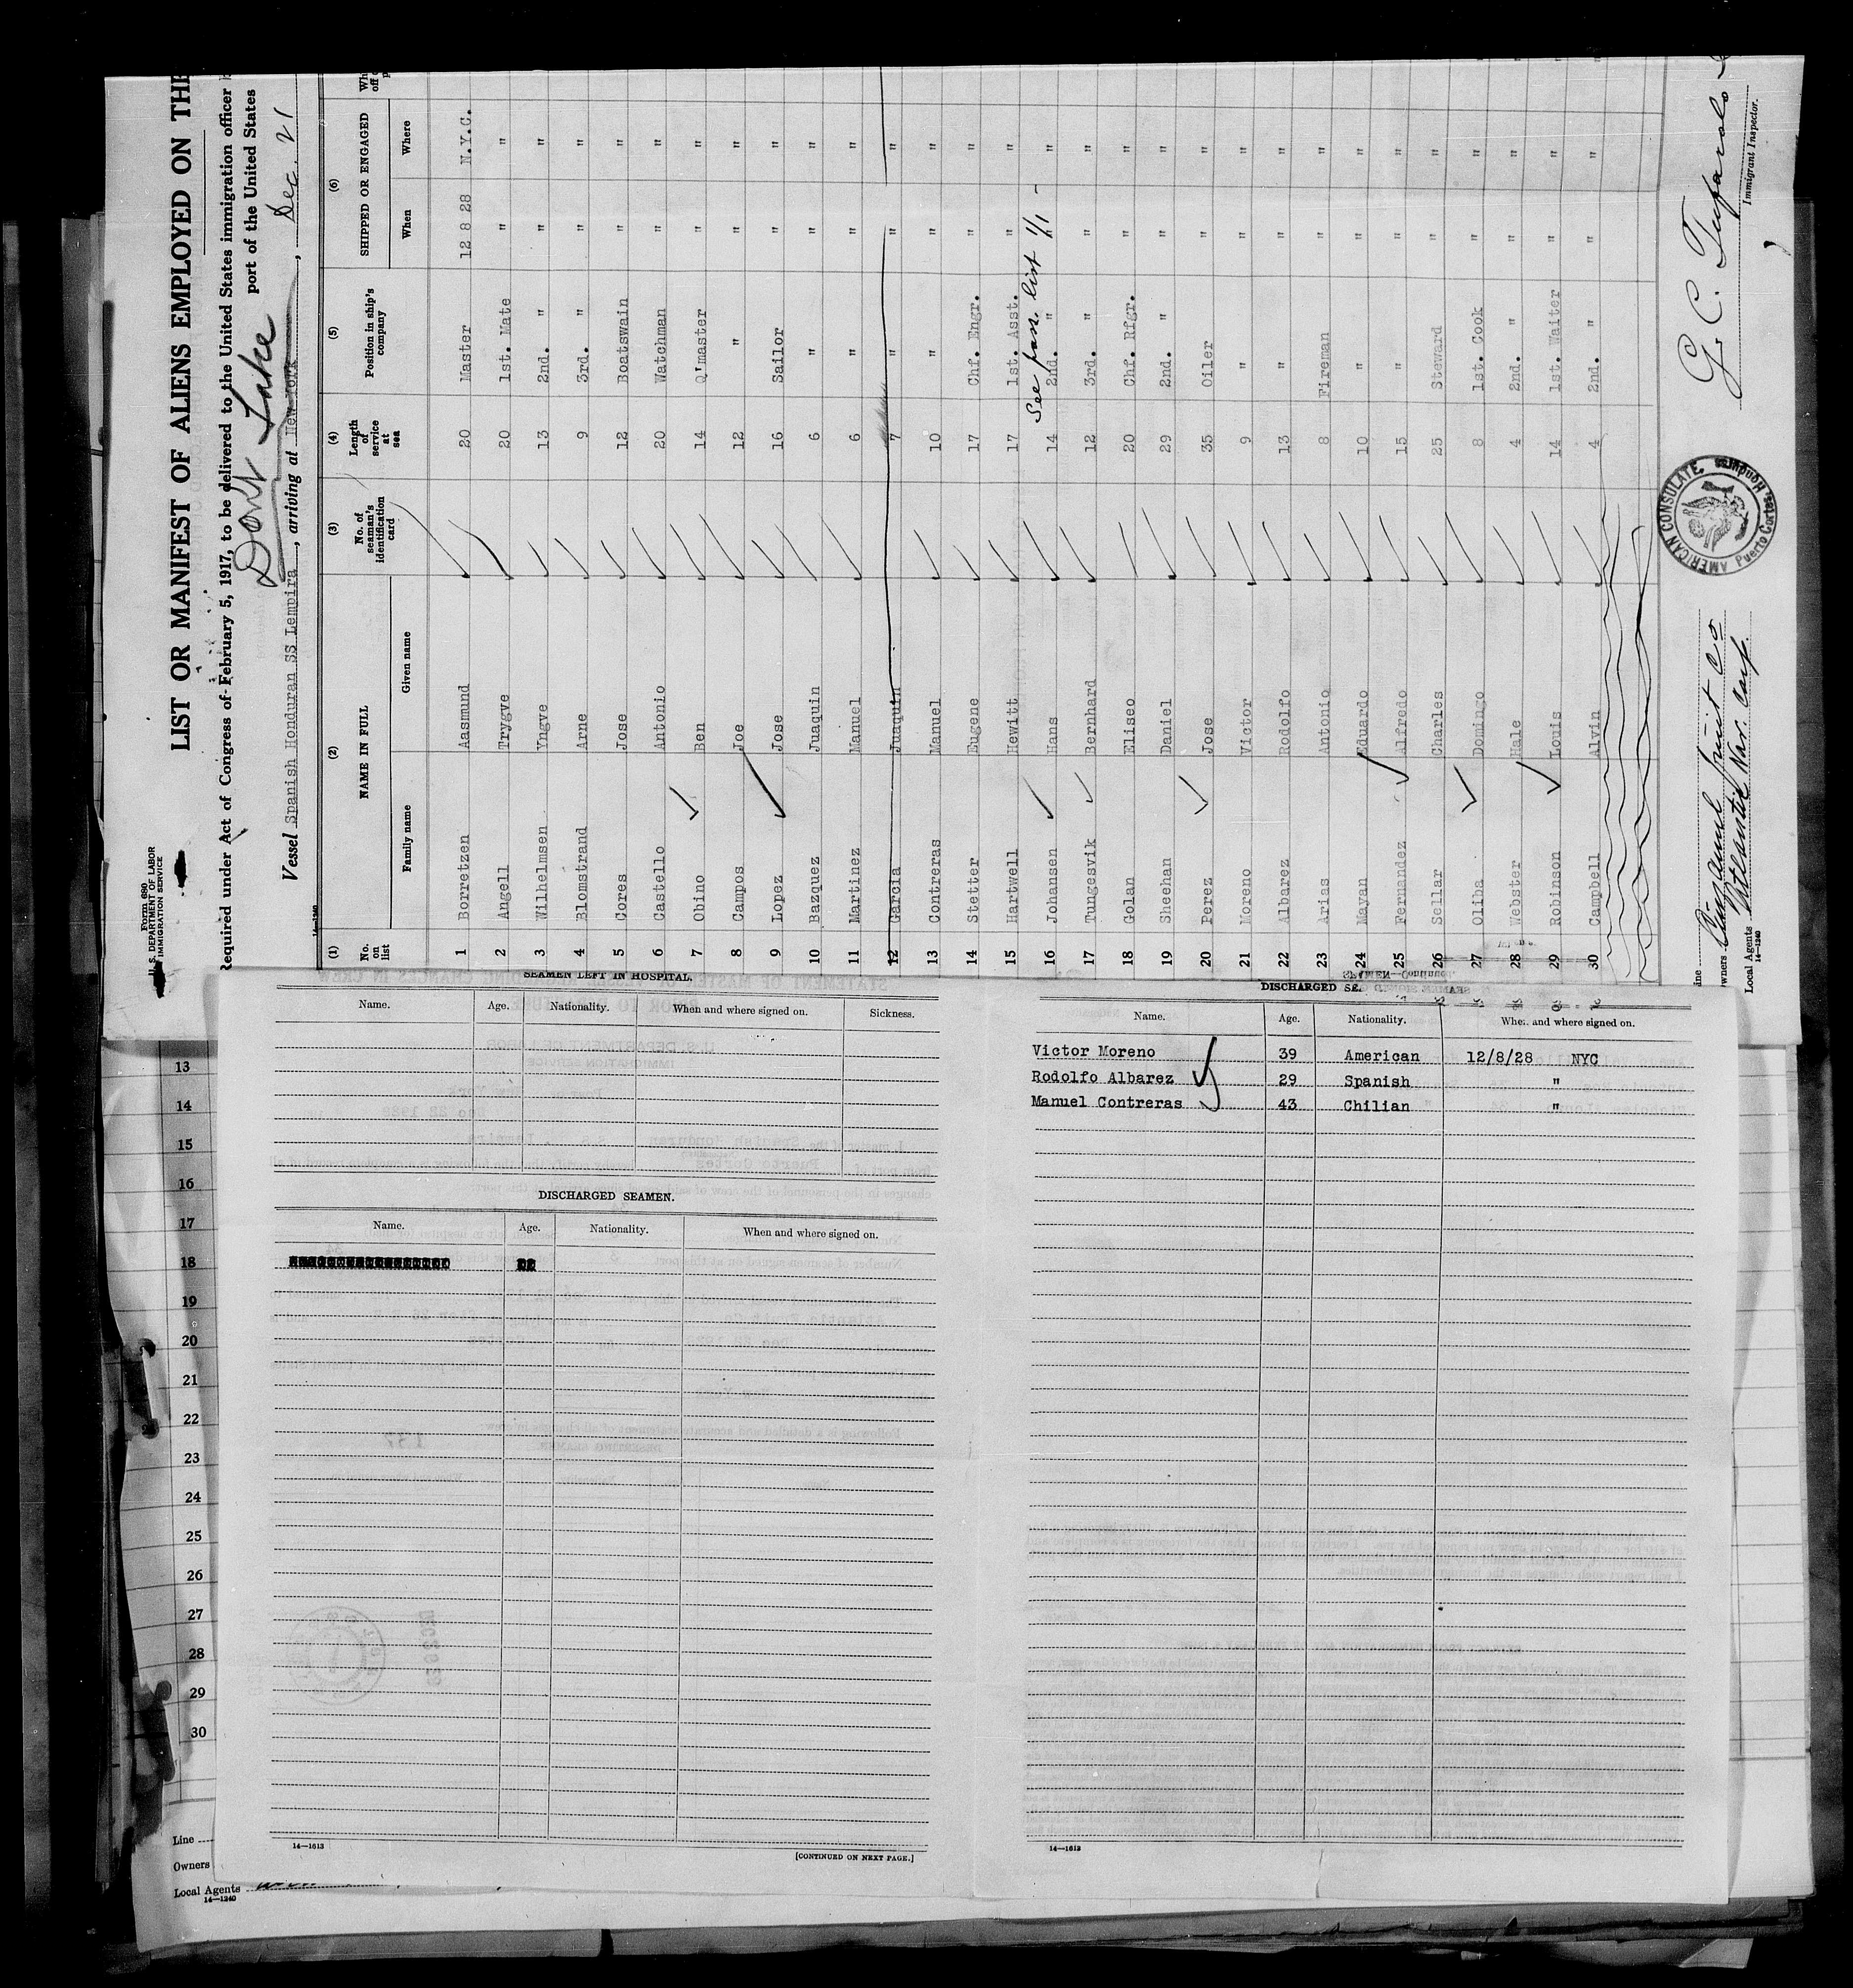 Form 680
U. S. DEPARTMENT OF LABOR
IMMIGRATION SERVICE
LIST OR MANIFEST OF ALIENS EMPLOYED ON THE
Required under Act of Congress of February 5, 1917, to be delivered to the United States immigration officer
port of the United States
Dont Take
Vessel Spanish Honduran SS Lempira, arriving at New York, Dec. 21
14—1240
(1) (2) (3) (4) (5) (6)
No. on list NAME IN FULL No. of seaman's identification card Length of service at sea Position in ship's company SHIPPED OR ENGAGED
Family name Given name When Where
1 Borretzen Aasmund 20 Master 12 8 28 N.Y.C.
2 Angell Trygve 20 1st. Mate " "
3 Wilhelmsen Yngve 13 2nd. " " "
4 Blomstrand Arne 9 3rd. " " "
5 Cores Jose 12 Boatswain " "
6 Castello Antonio 20 Watchman " "
7 Obino Ben 14 Q'master " "
8 Campos Joe 12 " " "
9 Lopez Jose 16 Sailor " "
10 Bazquez Juaquin 6 " " "
11 Martinez Manuel 6 " " "
12 Garcia Juaquin 7 " " "
13 Contreras Manuel 10 " " "
14 Stetter Eugene 17 Chf. Engr. " "
15 Hartwell Hewitt 17 1st. Asst. " "
See pass. list 1/1 -
16 Johansen Hans 14 2nd. " " "
17 Tungesvik Bernhard 12 3rd. " " "
18 Golan Eliseo 20 Chf. Rfgr. " "
19 Sheehan Daniel 29 2nd. " " "
20 Perez Jose 35 Oiler " "
21 Moreno Victor 9 " " "
22 Albarez Rodolfo 13 " " "
23 Arias Antonio 8 Fireman " "
24 Mayan Eduardo 10 " " "
25 Fernandez Alfredo 15 " " "
26 Sellar Charles 25 Steward " "
27 Oliba Domingo 8 1st. Cook " "
28 Webster Hale 4 2nd. " " "
29 Robinson Louis 14 1st. Waiter " "
30 Campbell Alvin 4 2nd. " " "
Owners Cuyamel Fruit Co
Local Agents Atlantic Nav. Corp.
14—1240
AMERICAN CONSULATE, Puerto Cortes, Honduras
G. C.
Immigrant Inspector.
SEAMEN LEFT IN HOSPITAL.
Name. Age. Nationality. When and where signed on. Sickness.
DISCHARGED SEAMEN.
Name. Age. Nationality. When and where signed on.
14—1613
[CONTINUED ON NEXT PAGE.]
SEAMEN—Continued
DISCHARGED SE
Name. Age. Nationality. When and where signed on.
Victor Moreno 39 American 12/8/28 NYC
Rodolfo Albarez 29 Spanish "
Manuel Contreras 43 Chilian "
14—1613
13
14
15
16
17
18
19
20
21
22
23
24
25
26
27
28
29
30
Line
Owners
Local Agents
14—1240